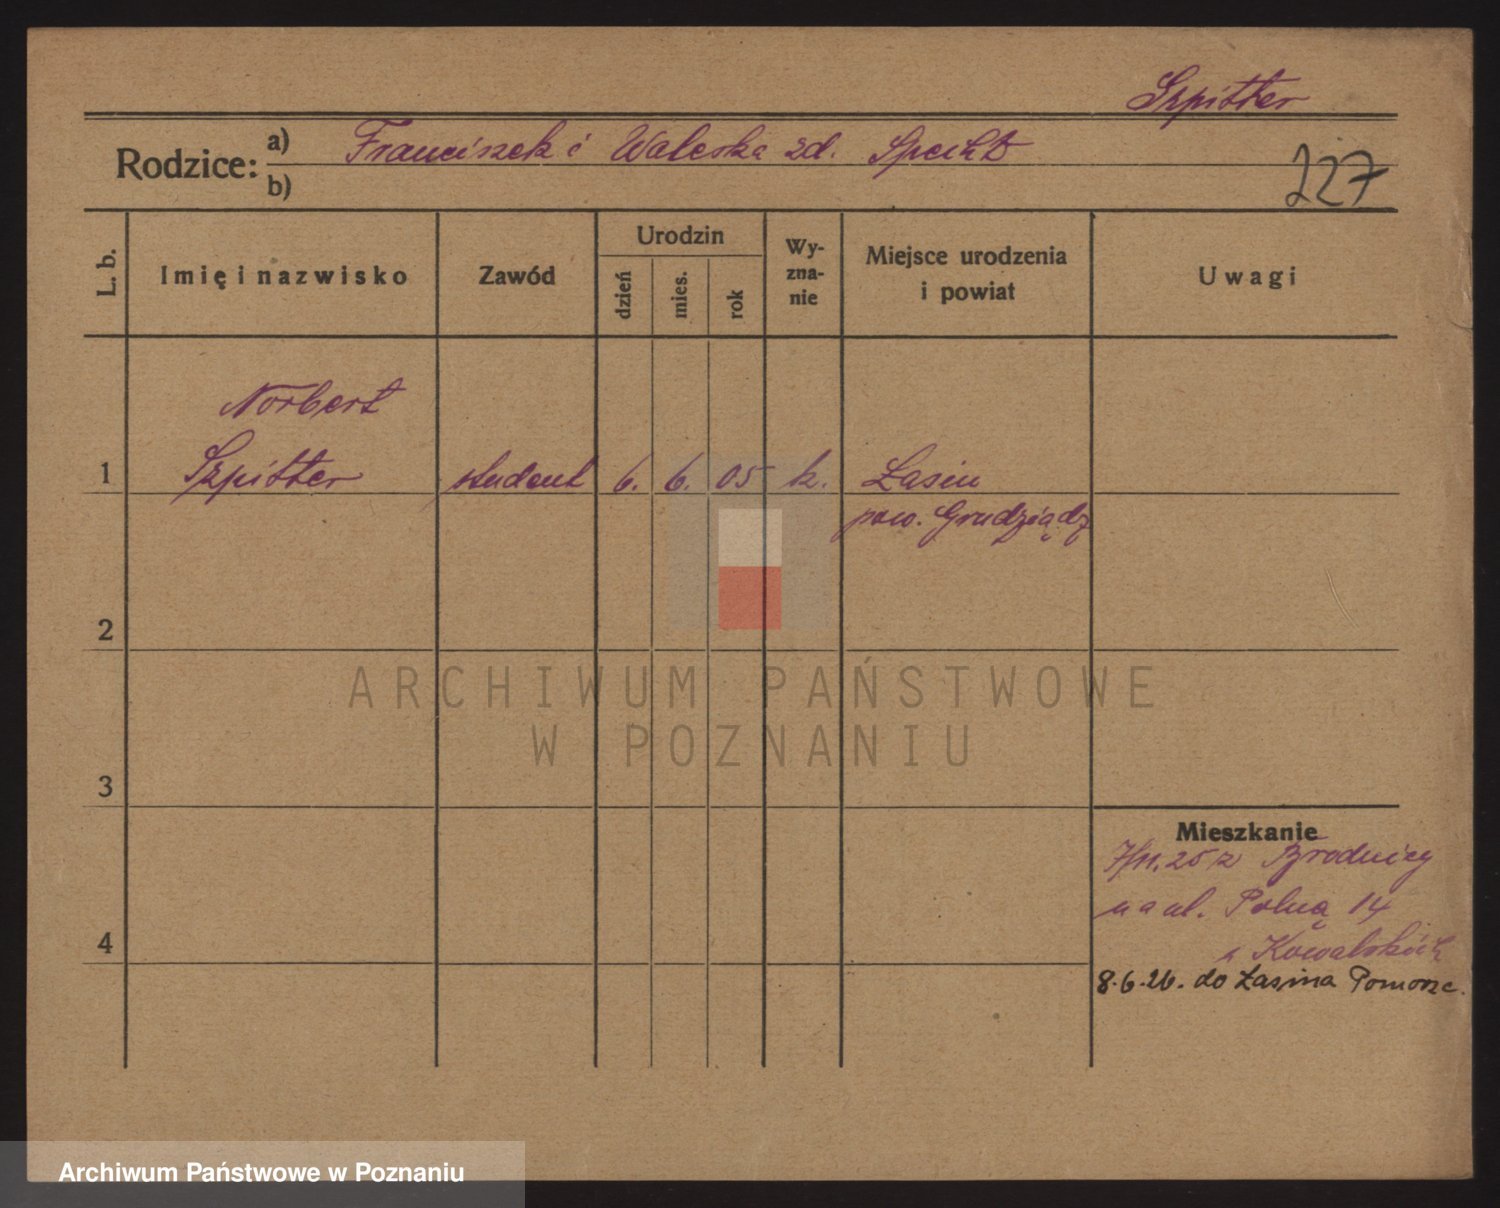 Szpitter
Rodzice: a) Franciszek i Waleska zd. Specht
b)
227
L. b.
Imię i nazwisko
Zawód
Urodzin
dzień
mies.
rok
Wy-
zna-
nie
Miejsce urodzenia
i powiat
Uwagi
Norbert
1 Szpitter student 6. 6. 05 k. Łasin
pow. Grudziądz
2
3
4
Mieszkanie
7/11.25 z Brodnicy
na ul. Polną 14
Kowalskich
8.6.26. do Łasina Pomorze.
ARCHIWUM PAŃSTWOWE
W POZNANIU
Archiwum Państwowe w Poznaniu